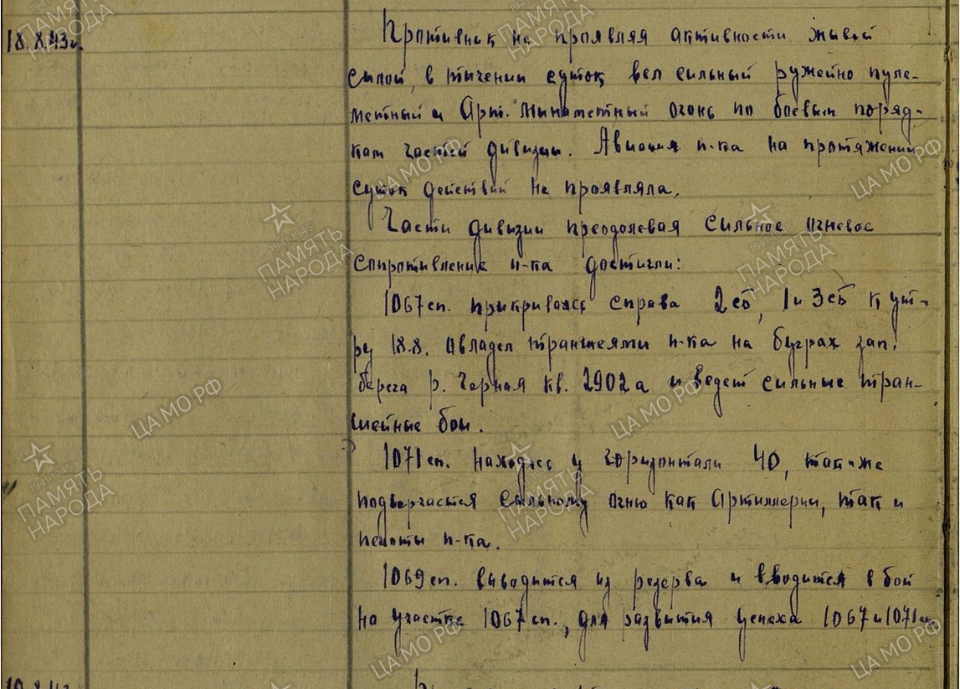 18.8.43г.
Противник не проявляя активности живой
силой, в течении суток вел сильный ружейно пуле-
метный и Арт. Минометный огонь по боевым поряд-
кам частей дивизии. Авиация п-ка на протяжении
суток действий не проявляла.
Части дивизии преодолевая сильное огневое
сопротивление п-ка достигли:
1067 сп. прикрываясь справа 2сб, 1 и 3сб к ут-
ру 18.8. овладел траншеями п-ка на буграх зап.
берега р. Черная кв. 2902а и ведет сильные тран-
шейные бои.
1071 сп. находясь у горизонтали 40, так-же
подвергается сильному огню как Артиллерии, так и
пехоты п-ка.
1069 сп. выводится из резерва и вводится в бой
на участке 1067 сп., для развития успеха 1067 и 1071 сп.
ПАМЯТЬ НАРОДА
ЦА МО РФ